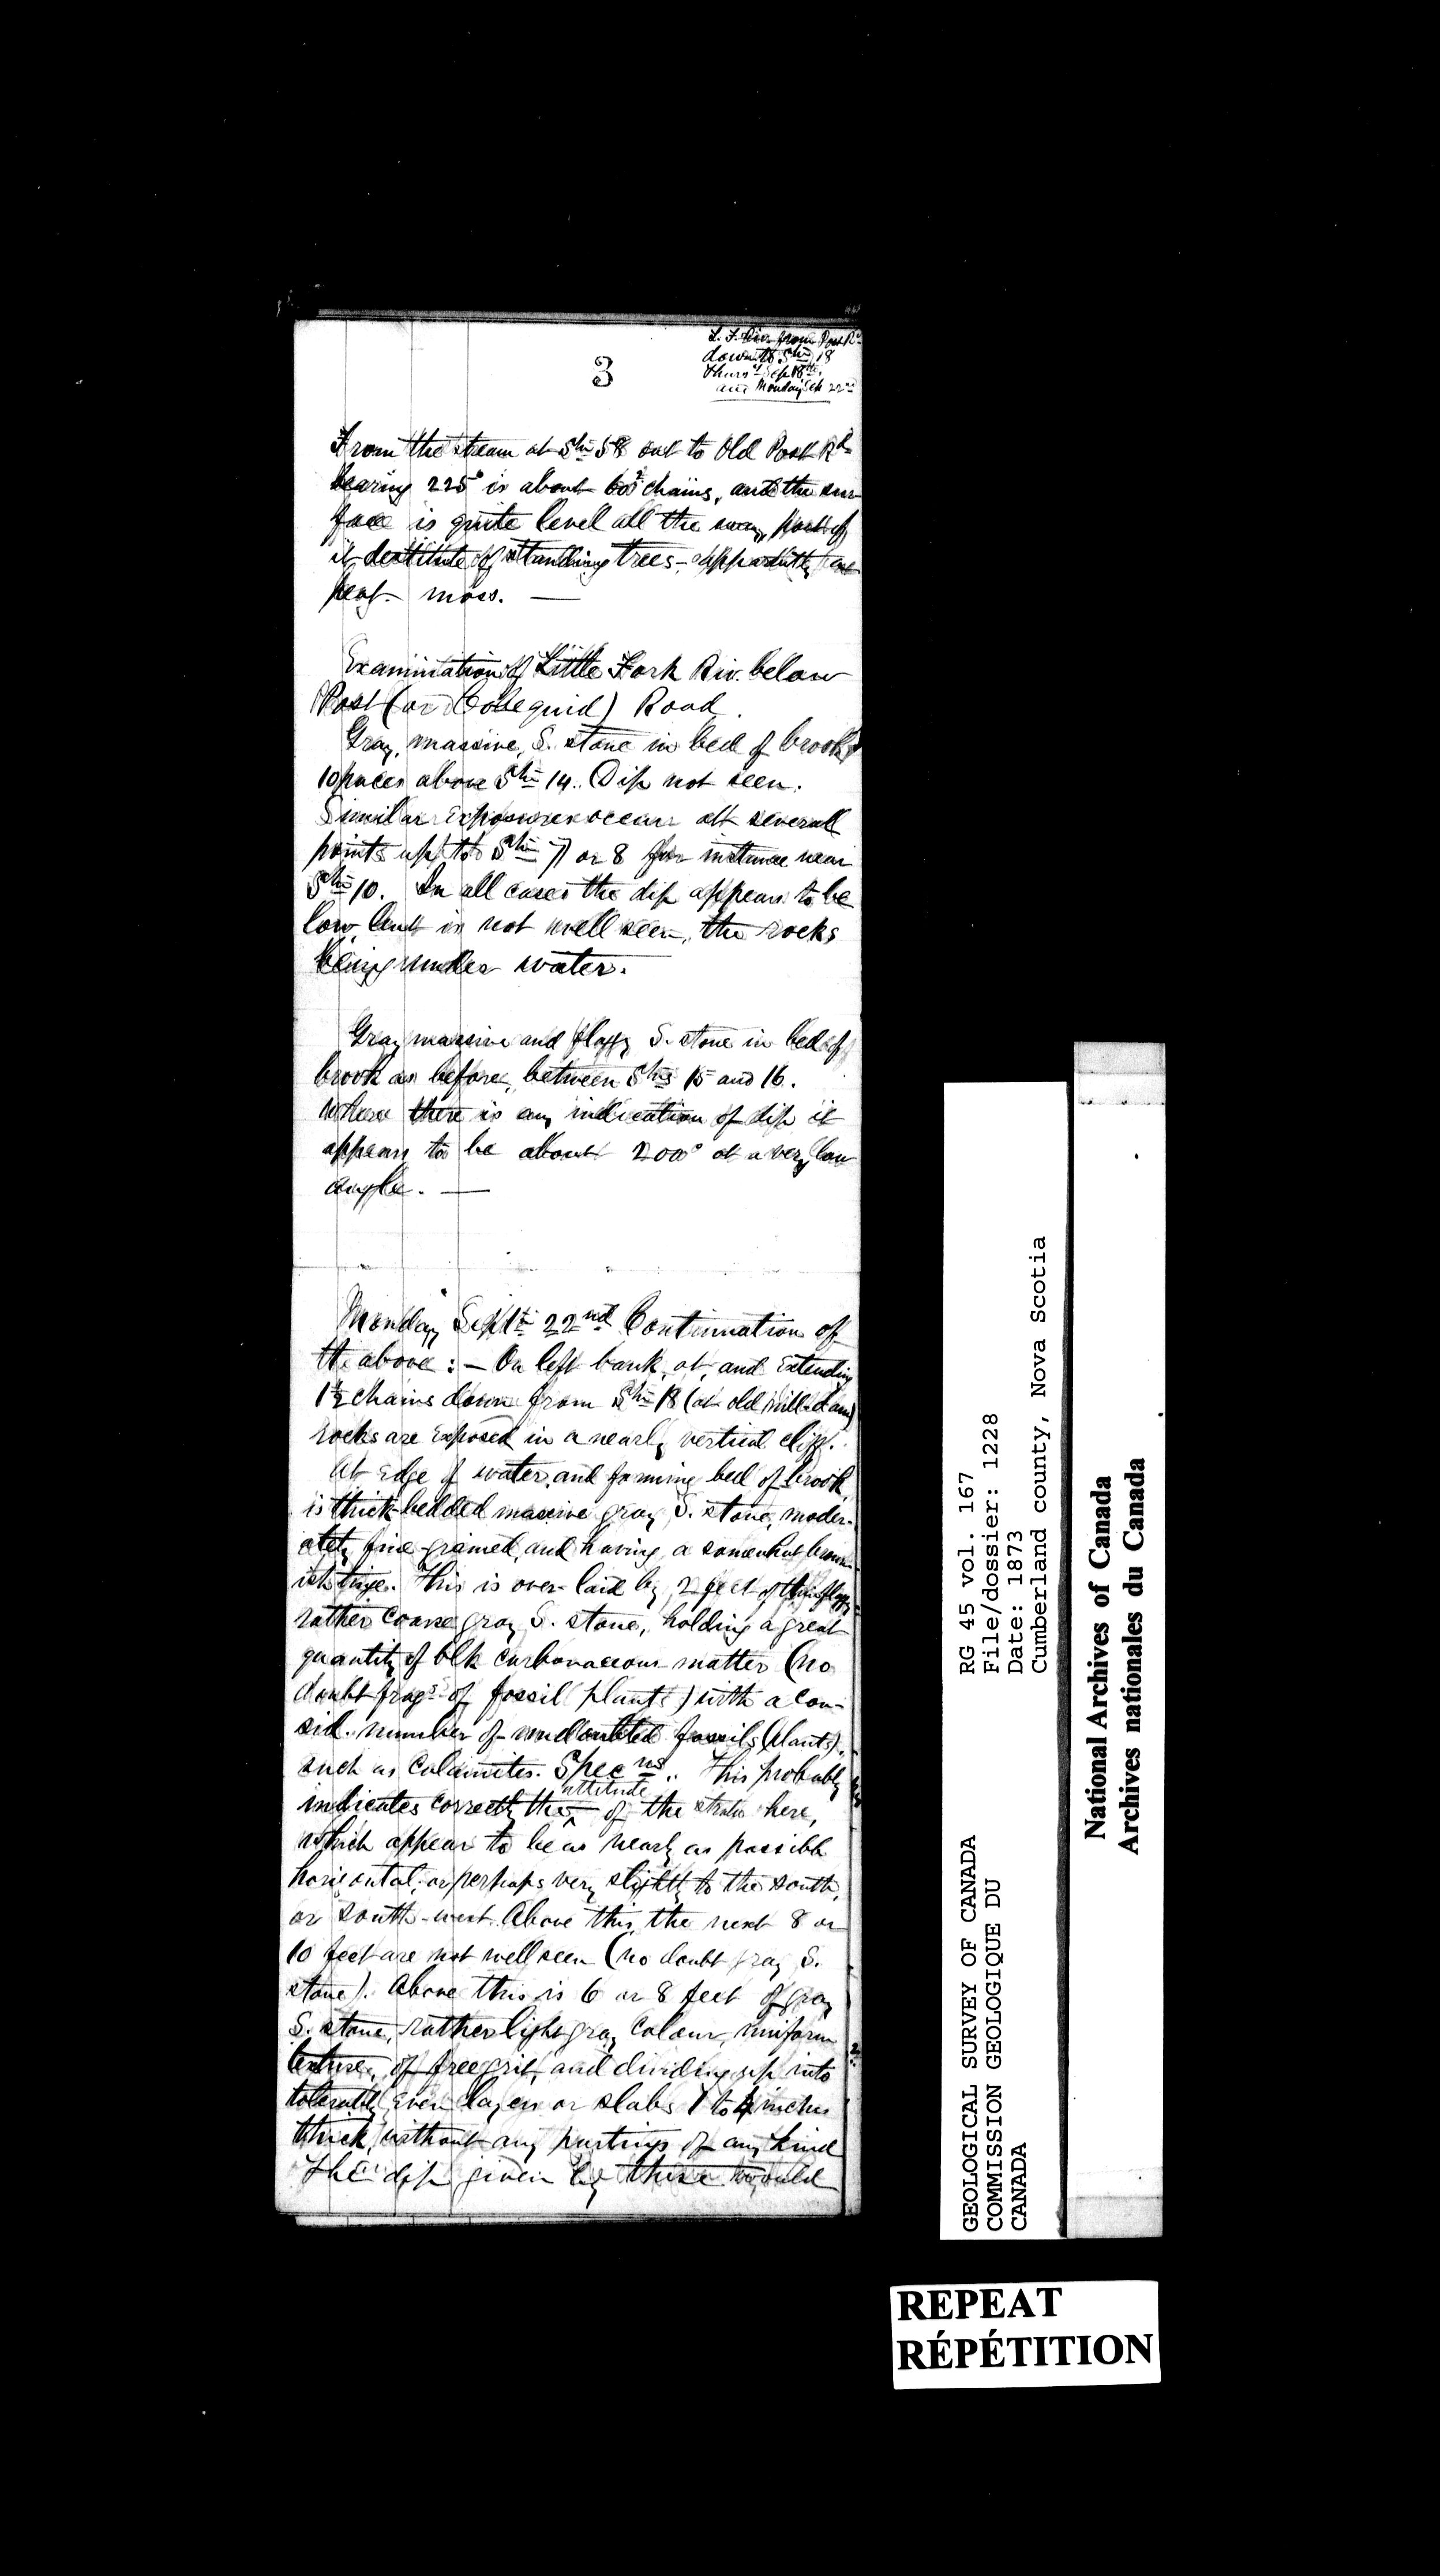 L. F. Riv. from Post Rd
down to Stn 18
Thurs Sep 18th
and Monday Sep 22nd
3
From the stream at Stn 58 out to Old Post Rd
bearing 225° is about chains, and the sur-
face is quite level all the way, part of
it destitute of standing trees - apparently
peat-moss. —
Examination of Little Fork Riv. below
Post (or Cobequid) Road.
Gray, massive, S. stone in bed of brook
10 paces above Stn 14. Dip not seen.
Similar exposures occur at several
points up to Stn 7 or 8 for instance near
Stn 10. In all cases the dip appears to be
low, but is not well seen, the rocks
being under water.
Gray massive and flaggy S. stone in bed of
brook as before, between Stns 15 and 16.
Where there is any indication of dip it
appears to be about 200° at a very low
angle. —
Monday Sept 22nd Continuation of
the above : — On left bank, at, and extending
1½ chains down from Stn 18 (at old mill-dam)
rocks are exposed in a nearly vertical cliff.
At edge of water, and forming bed of brook,
is thick-bedded massive gray S. stone, moder-
ately fine-grained, and having a somewhat brown-
ish tinge. This is over-laid by 2 feet of thin flaggy
rather coarse gray S. stone, holding a great
quantity of blk carbonaceous matter (no
doubt frags of fossil plants) with a con-
sid. number of undoubted fossils (plants),
such as calamites. Specns. This probably
indicates correctly the attitude of the strata here,
which appear to be as nearly as possible
horizontal, or perhaps very slightly to the south,
or south-west. Above this, the next 8 or
10 feet are not well seen (no doubt gray S.
stone). Above this is 6 or 8 feet of gray
S. stone, rather light gray colour, uniform
texture, of free grit, and dividing up into
tolerably even layers or slabs 1 to 4 inches
thick, without any partings of any kind
The dip given by these would
GEOLOGICAL SURVEY OF CANADA
COMMISSION GEOLOGIQUE DU
CANADA
RG 45 vol. 167
File/dossier: 1228
Date: 1873
Cumberland county, Nova Scotia
National Archives of Canada
Archives nationales du Canada
REPEAT
RÉPÉTITION